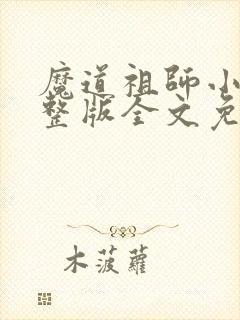 魔道祖師小
整版全文免
木菠蘿